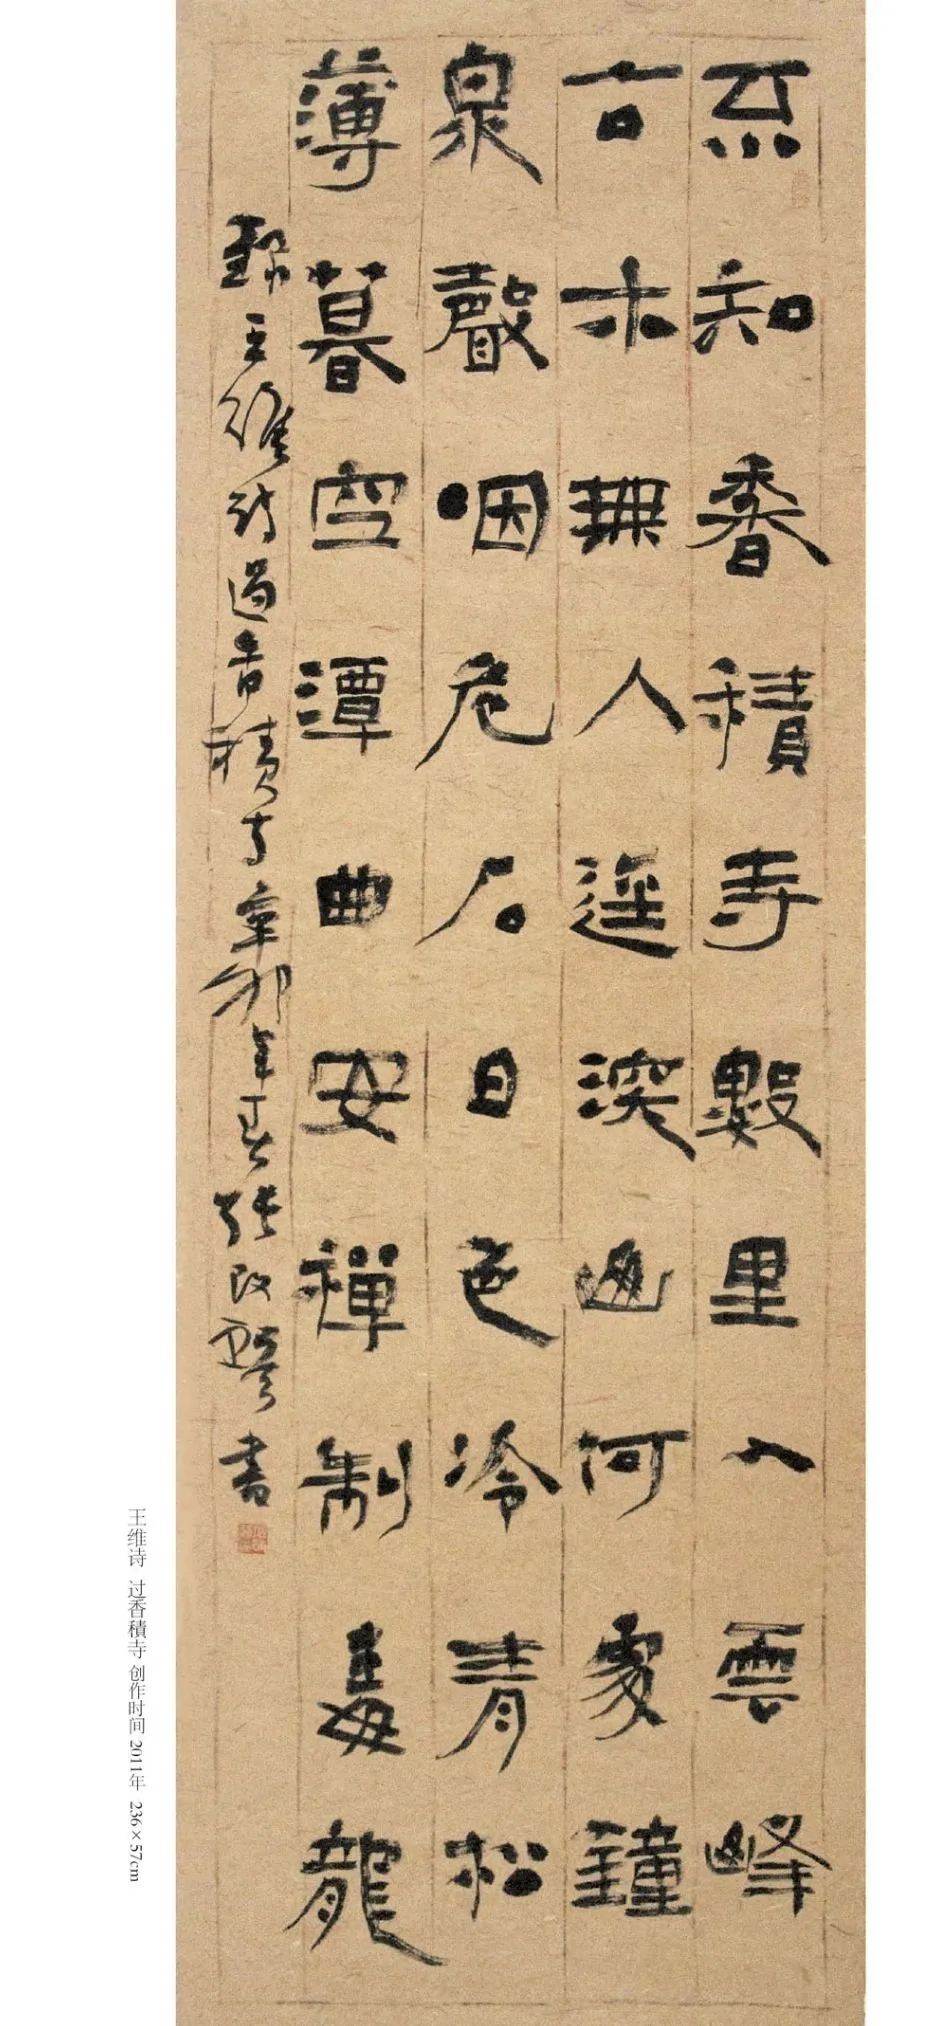 不知香積寺數里入雲峰
古木無人逕深山何處鐘
泉聲咽危石日色冷青松
薄暮空潭曲安禪制毒龍
錄王維詩過香積寺辛卯年夏張改琴書
王维诗 过香積寺 创作时间 2011年 236×57cm